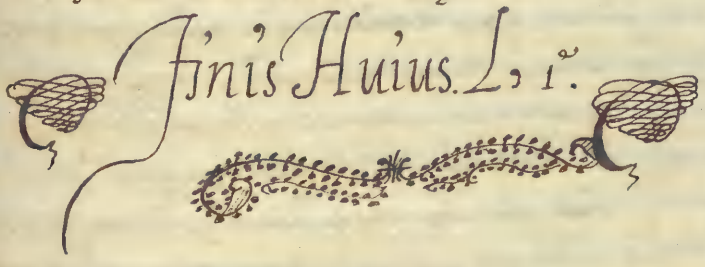 Finis Huius. L, 1º.